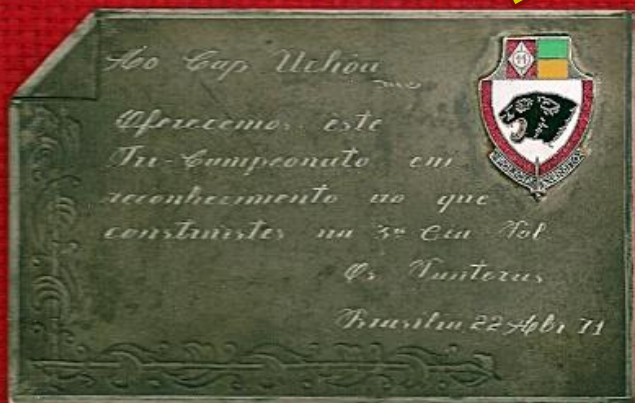 Ao Cap Uchôa
Oferecemos este
Tri-Campeonato em
reconhecimento ao que
construistes na 3ª Cia Pol
Os Panteras
Brasília 22 Abr 71
11